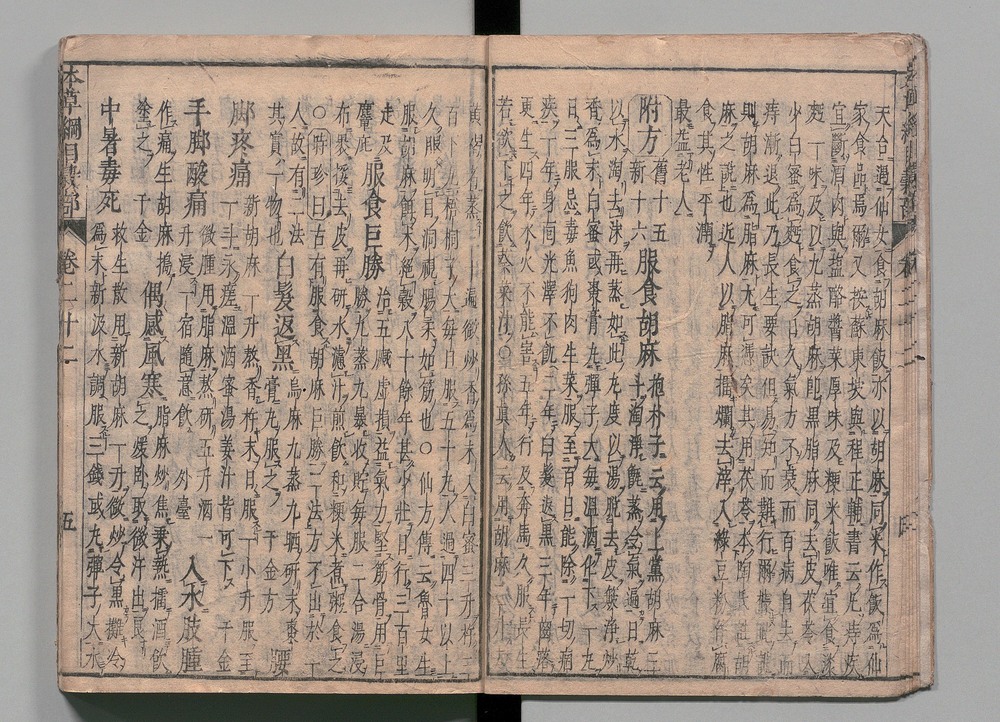 天台遇仙女食胡麻飯亦以胡麻同米作飯爲仙
家食品焉爾又按蘇東坡與程正輔書云凡痔疾
宜斷酒肉與鹽酪醬菜厚味及粳米飯唯宜食淡
麪一味及以九蒸胡麻卽黑脂麻同去皮茯苓入
少白蜜爲麪食之日久氣力不衰而百病自去而
痔漸退此乃長生要訣但易知而難行爾
則胡麻爲脂麻尤可憑矣其用茯苓本陶氏
麻之說也近人以脂麻擂爛去滓入綠豆粉作腐
食其性平潤
最益老人
附方 舊十五 新十六
服食胡麻 抱朴子云用上黨胡麻三
斗淘淨甑蒸令氣遍日乾
以水淘去沫再蒸如此九度以湯脫去皮簸淨炒
香爲末白蜜或棗膏丸彈子大每溫酒化下一丸
日三服忌毒魚狗肉生菜服至百日能除一切痼
疾一年身面光澤不飢二年白髮返黑三年齒落
更生四年水火不能害五年行及奔馬久服長生
若欲下之飲葵菜汁○孫眞人云用胡麻三升去
黃褐者蒸三十遍微炒香爲末入白蜜三升杵三
百下丸梧桐子大每旦服五十丸人過四十以上
久服明目洞視腸柔如筋也○仙方傳云魯女生
服胡麻餌朮絕穀八十餘年甚少壯日行三百里
走及
麞鹿
服食巨勝 治五臟虛損益氣力堅筋骨用巨
勝九蒸九暴收貯每服二合湯浸
布裹挼去皮再研水濾汁煎飲和粳米煮粥食之
○時珍曰古有服食胡麻巨勝二法方不出於一
人故有二法
其實一物也
白髮返黑 烏麻九蒸九晒研末棗
膏丸服之 千金方
腰
脚疼痛 新胡麻一升熬香杵末日服一小升服至
一斗永瘥溫酒蜜湯姜汁皆可下 千金
手脚酸痛 微腫用脂麻熬研五升酒一
升浸一宿隨意飲 外臺
入水肢腫
作痛生胡麻搗
塗之 千金
偶感風寒 脂麻炒焦乘熱擂酒飲
之煖臥取微汗出良
中暑毒死 救生散用新胡麻一升微炒令黑攤冷
爲末新汲水調服三錢或丸彈子大水
本草綱目穀部 卷二十二 五